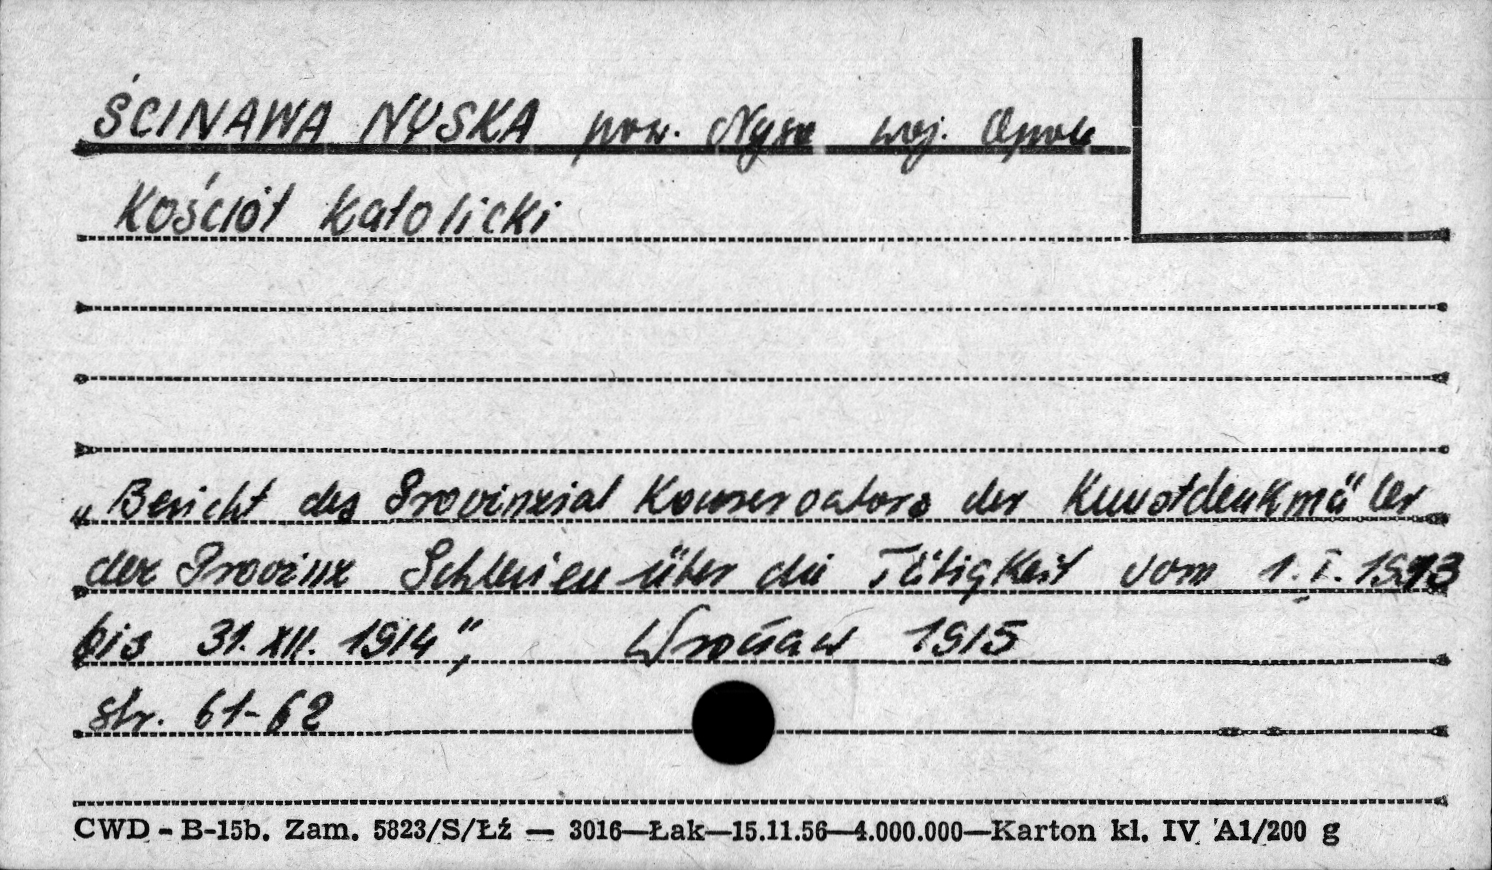 ŚCINAWA NYSKA pow. Nysa woj. Opole
Kościół katolicki
„Bericht des Provinzial Konservators der Kunstdenkmäler
der Provinz Schlesien über die Tätigkeit vom 1.I.1913
bis 31.XII.1914", Wrocław 1915
str. 61-62
CWD - B-15b. Zam. 5823/S/Łź — 3016—Łak—15.11.56—4.000.000—Karton kl. IV A1/200 g